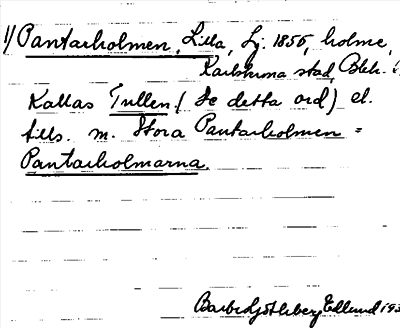 1/ Pantarholmen, Lilla, Lj. 1856, holme,
Karlskrona stad, Blek.
Kallas Tullen (Se detta ord) el.
tills. m. Stora Pantarholmen =
Pantarholmarna.
Edlund 193